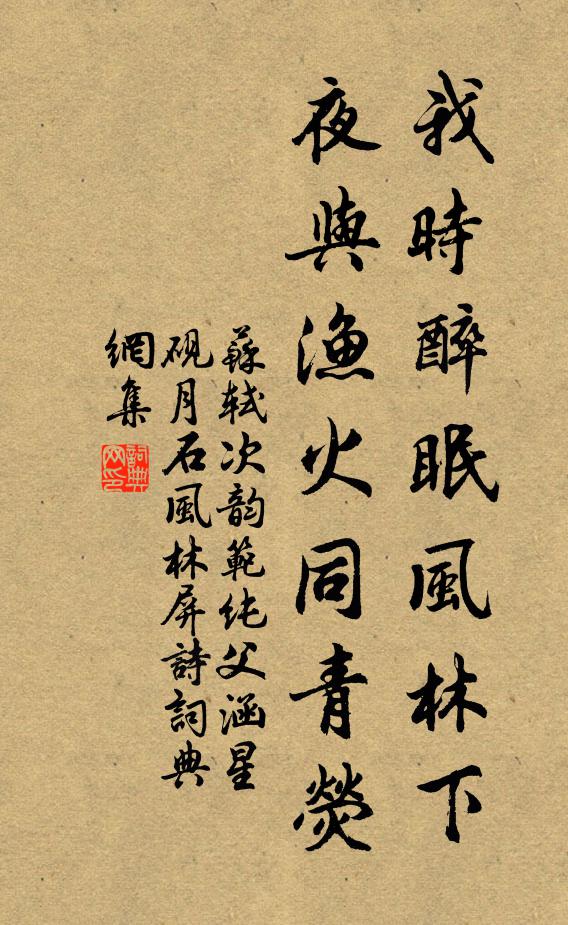 我時醉眠風林下
夜與漁火同青熒
蘇軾次韵範純父涵星
硯月石風林屏詩詞典
網集
詞典网印